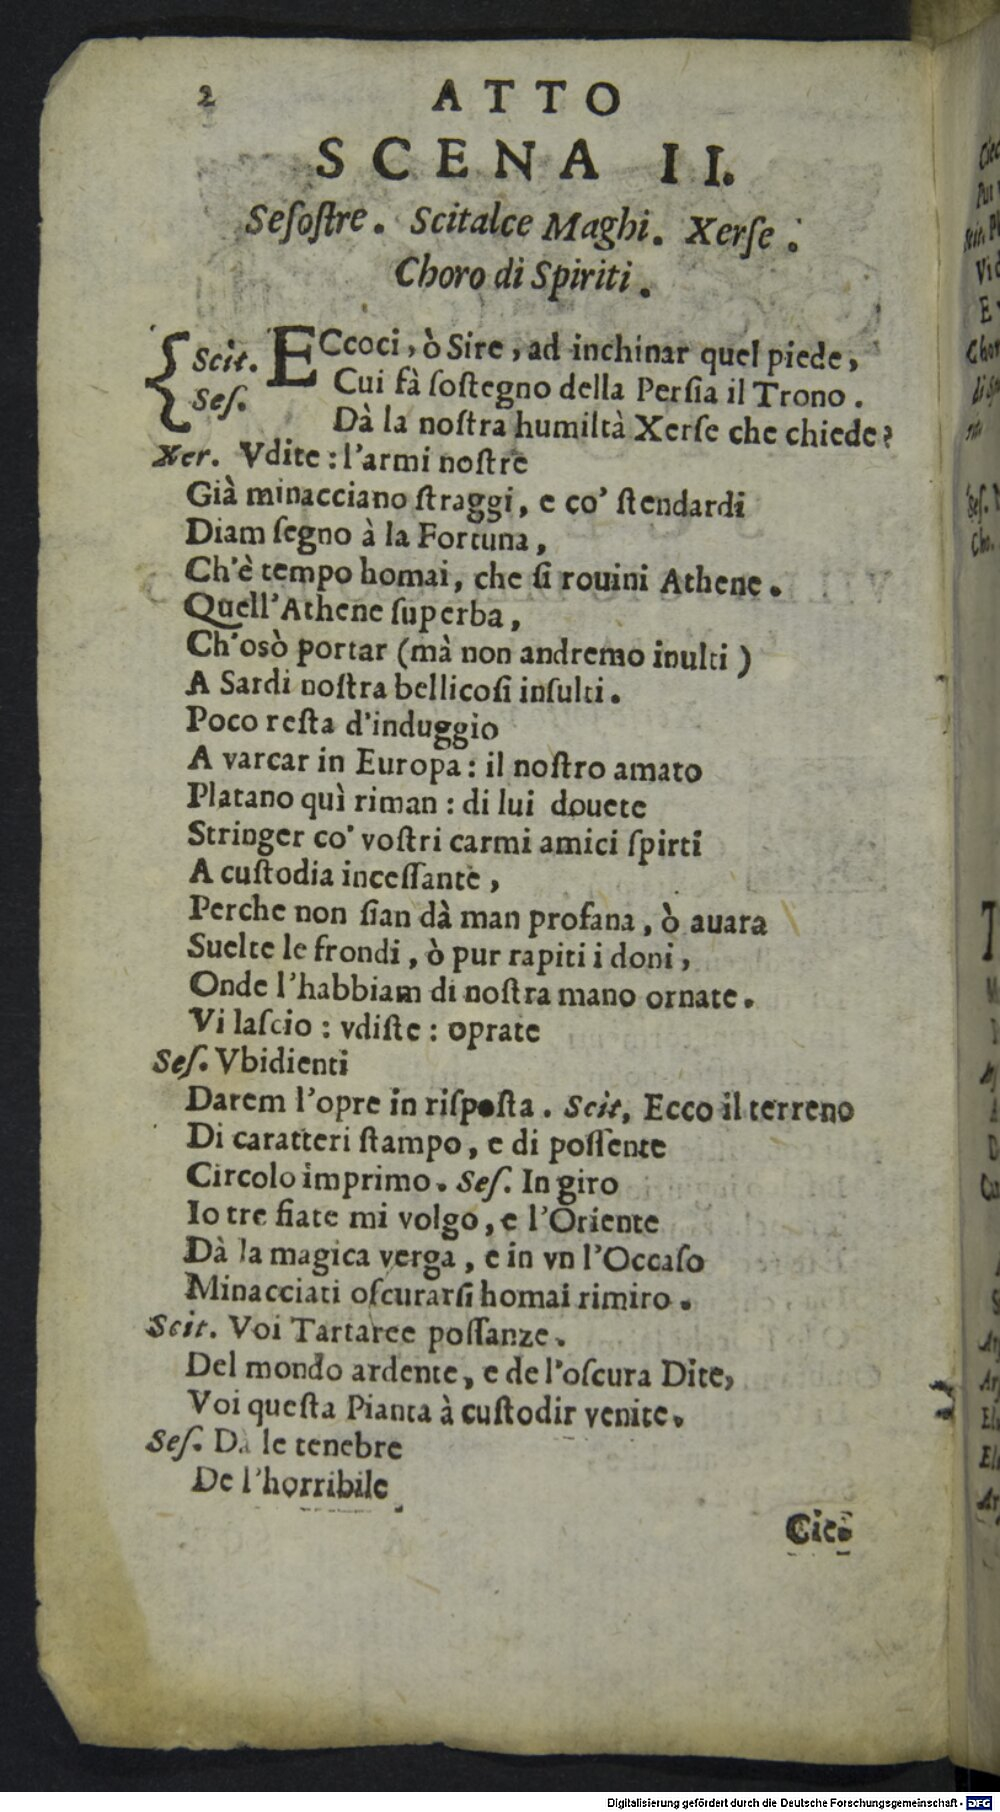 2
ATTO
SCENA II.
Seſoſtre. Scitalce Maghi. Xerſe.
Choro di Spiriti.
Scit. ECcoci, ò Sire, ad inchinar quel piede,
Seſ. Cui fà ſoſtegno della Perſia il Trono.
Dà la noſtra humiltà Xerſe che chiede?
Xer. Vdite: l'armi noſtre
Già minacciano ſtraggi, e co' ſtendardi
Diam ſegno à la Fortuna,
Ch'è tempo homai, che ſi rouini Athene.
Quell'Athene ſuperba,
Ch'osò portar (mà non andremo inulti)
A Sardi noſtra bellicoſi inſulti.
Poco reſta d'induggio
A varcar in Europa: il noſtro amato
Platano quì riman: di lui douete
Stringer co' voſtri carmi amici ſpirti
A cuſtodia inceſſante,
Perche non ſian dà man profana, ò auara
Suelte le frondi, ò pur rapiti i doni,
Onde l'habbiam di noſtra mano ornate.
Vi laſcio: vdiſte: oprate
Seſ. Vbidienti
Darem l'opre in riſpoſta. Scit, Ecco il terreno
Di caratteri ſtampo, e di poſſente
Circolo imprimo. Seſ. In giro
Io tre fiate mi volgo, e l'Oriente
Dà la magica verga, e in vn l'Occaſo
Minacciati oſcurarſi homai rimiro.
Scit. Voi Tartaree poſſanze.
Del mondo ardente, e de l'oſcura Dite,
Voi queſta Pianta à cuſtodir venite.
Seſ. Dà le tenebre
De l'horribile
Cie-
Digitalisierung gefördert durch die Deutsche Forschungsgemeinschaft - DFG